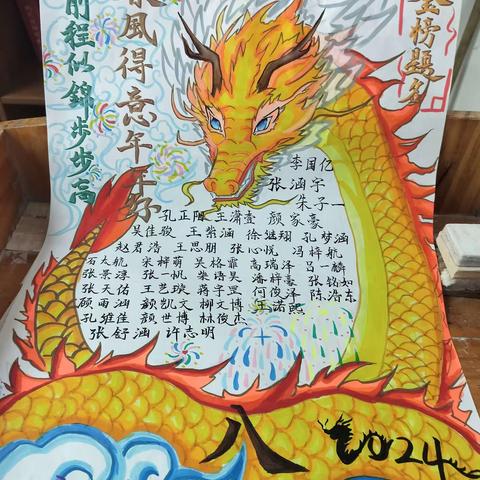 前程似錦步步高
風得意年年好
金榜题名
李国亿
张涵宇
朱子一
孔正阳 王潇壹 颜家豪
吴佳骏 王紫涵 徐继翔 孔梦涵
赵君浩 王思朋 张心悦 冯梓航
石大航 宋梓萌 吴格霏 高瑞泽 吕一麟
张景源 张一帆 柴语昊 潘梓萱 张铭如
张天佑 王艺璇 蒋宇罡 何俊泽 陈浩东
顾雨涵 颜凯文 柳文博 王诺熙
孔维佳 颜世博 林俊杰
张舒涵 许志明
八
2024